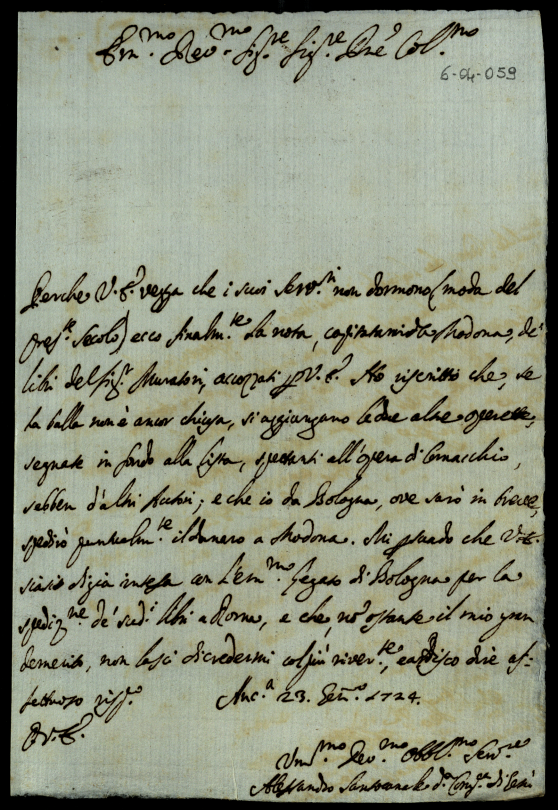 Em.mo Rev.mo Sig.re Sig.re Pne Col.mo
6-04-059
Perche V. E. vegga che i suoi Serv.ri non dormono (moda del
pres.te Secolo) ecco finalm.te la nota, capitatami da Modona, de'
libri del Sig.r Muratori, accozzati p V. E. Ho riscritto che, se
la balla non è ancor chiusa, si aggiungano le due altre operette,
segnate in fondo alla lista, spettanti all'opera di Comacchio,
sebben d'altri Autori; e che io da Bologna, ove sarò in breve,
spedirò puntualm.te il danaro a Modona. Mi psuado che V. E.
siasi digia intesa con l'Em.mo Legato di Bologna per la
spediz.ne de' sud.i libri a Roma, e che, nō ostante il mio gran
demerito, non lasci di credermi col più river.te, e ardisco dire af-
fettuoso risp.o
Anc.a 23. Gen.o 1724.
D V. E.
Um.mo Dev.mo Obbl.mo Serv.re
Alessandro d.a Comp.a di Gesù